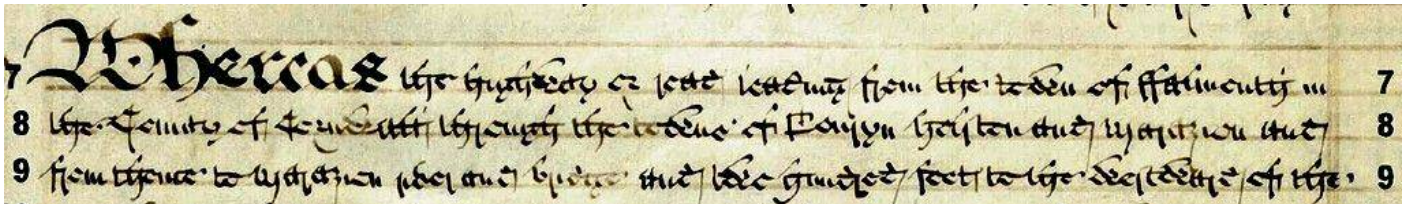 7 Whereas the highway or road leading from the town of Falmouth in 7
8 the County of Cornwall through the towns of Penryn Helston and Marazion and 8
9 from thence to Marazion river and bridge and two hundred feet to the westward of the 9